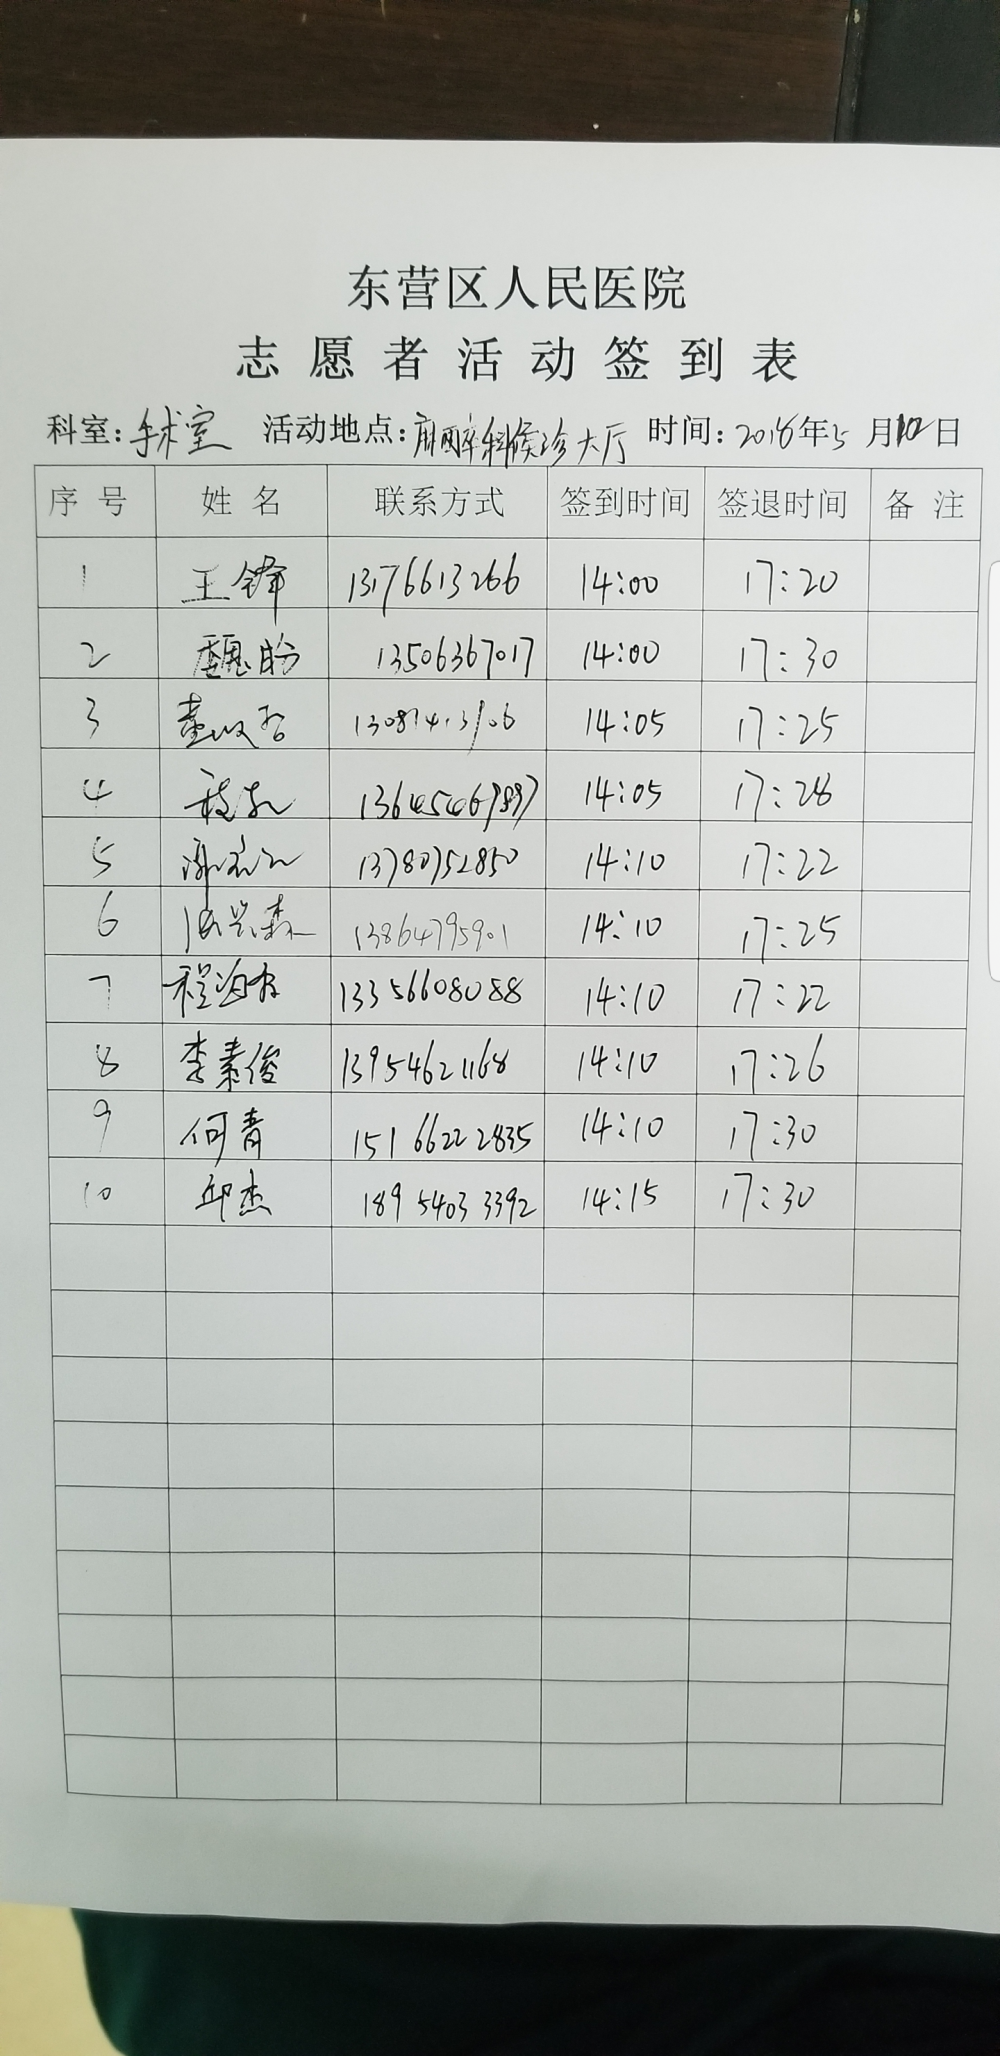 东营区人民医院
志愿者活动签到表
科室：手术室 活动地点：麻醉科候诊大厅 时间：2018年5月12日
序号 姓名 联系方式 签到时间 签退时间 备注
1 王锋 13176613266 14:00 17:20
2 魏盼 13506367017 14:00 17:30
3 14:05 17:25
4 13645467897 14:05 17:28
5 13780752850 14:10 17:22
6 13864795901 14:10 17:25
7 程海 13356608088 14:10 17:22
8 李素俊 13954621168 14:10 17:26
9 何青 15166222835 14:10 17:30
10 邱杰 18954033392 14:15 17:30